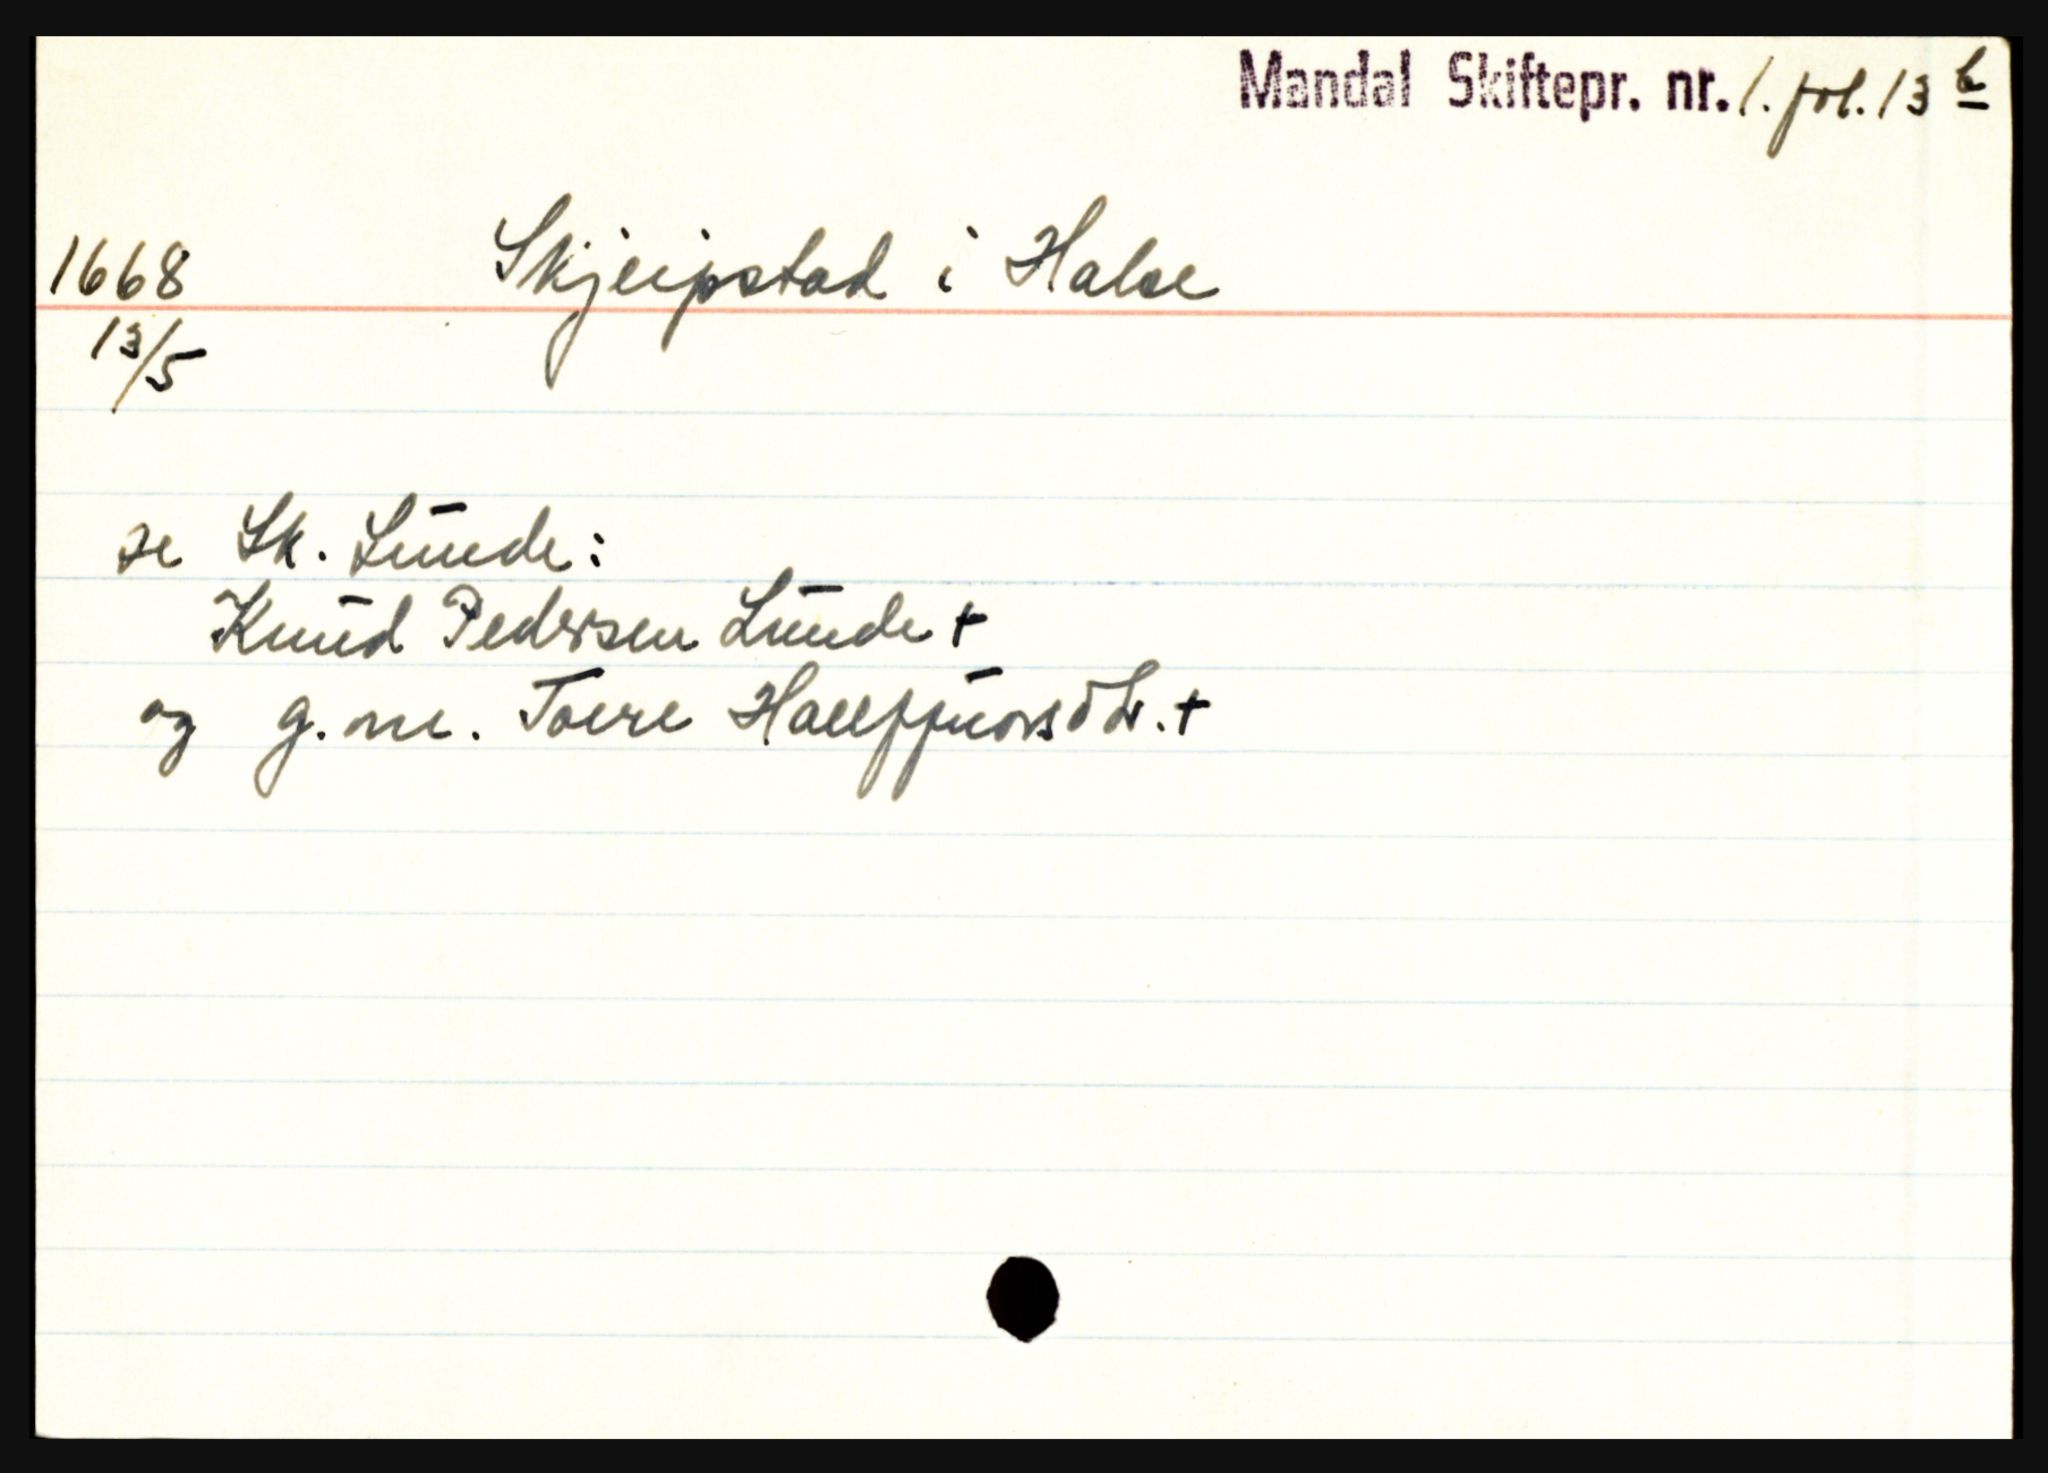 Mandal Skiftepr. nr. 1. fol. 13 b
1668 Skjeipstad i Halse
13/5
se Sk. Lunde:
Knud Pedersen Lunde +
og g.m. Toere